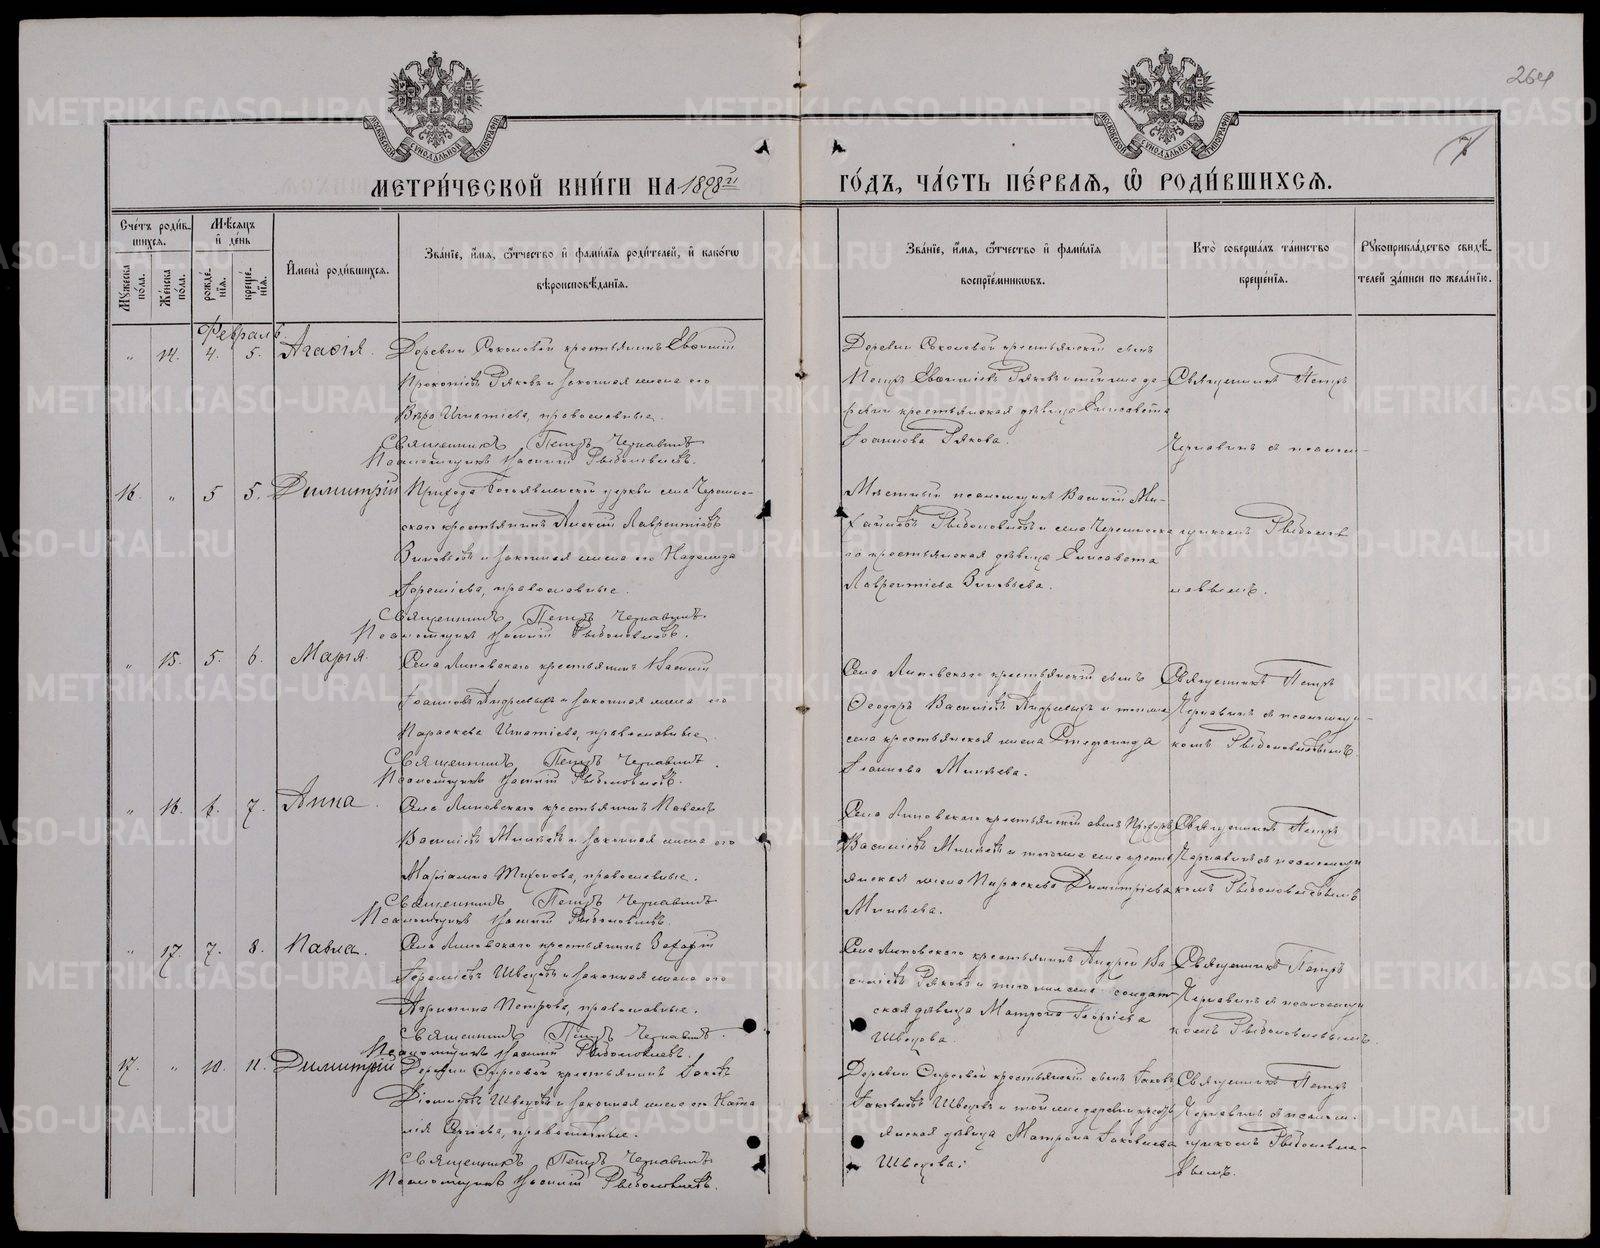 264
7
МЕТРИ́ЧЕСКОЙ КНИ́ГИ НА 1898й ГО́ДЪ, ЧА́СТЬ ПЕ́РВАЯ, Ѿ РОДИ́ВШИХСЯ.
Сче́тъ роди́в-
шихся.
Мꙋжеска по́ла.
Же́нска по́ла.
Мѣ́сяцъ и де́нь
рожде́-
нїя.
креще́-
нїя.
И҆мена̀ роди́вшихся.
Зва́нїе, и҆́мя, ѻ҆́тчество и҆ фами́лїя роди́телей, и҆ како́гѡ
вѣроисповѣ́данїя.
Зва́нїе, и҆́мя, ѻ҆́тчество и҆ фами́лїя
воспрїе́мникѡвъ.
Кто̀ соверша́лъ та́инство
креще́нїя.
Рꙋкоприкла́дство свидѣ́-
телей за́писи по жела́нїю.
Февраль
" 14. 4. 5. Агаѳія.
Деревни Соколовой крестьянинъ Евѳимій
Прокопіевъ Ряковъ и законная жена его
Вѣра Игнатіева, православные.
Священникъ Петръ Чернавинъ
Псаломщикъ Василій Рыболовлевъ.
Деревни Соколовой крестьянскій сынъ
Петръ Евѳиміевъ Ряковъ и той же де-
ревни крестьянская дѣвица Елисавета
Іоаннова Рякова.
Священникъ Петръ
Чернавинъ съ псалом-
16. " 5 5. Димитрій
Прихода Богоявленской церкви села
крестьянинъ Алексій Лаврентіевъ
Зиновьевъ и законная жена его Надежда
православные.
Священникъ Петръ Чернавинъ.
Псаломщикъ Василій Рыболовлевъ.
Мѣстный псаломщикъ Василій Ми-
хайловъ Рыболовлевъ и села
го крестьянская дѣвица Елисавета
Лаврентіева Зиновьева.
щикомъ Рыболов-
левымъ.
" 15. 5. 6. Марія.
Села Липовскаго крестьянинъ Василій
Іоанновъ Андреевыхъ и законная жена его
Параскева Игнатіева, православные.
Священникъ Петръ Чернавинъ.
Псаломщикъ Василій Рыболовлевъ.
Села Липовскаго крестьянскій сынъ
Ѳеодоръ Василіевъ Андреевыхъ и того же
села крестьянская жена Стефанида
Іоаннова Минѣева.
Священникъ Петръ
Чернавинъ съ псаломщи-
комъ Рыболовлевымъ.
" 16. 6. 7. Анна.
Села Липовскаго крестьянинъ Павелъ
Василіевъ Минѣевъ и законная жена его
Маріамна Тихонова, православные.
Священникъ Петръ Чернавинъ
Псаломщикъ Василій Рыболовлевъ.
Села Липовскаго крестьянскій сынъ
Василіевъ Минѣевъ и того же села кресть-
янская жена Параскева Димитріева
Минѣева.
Священникъ Петръ
Чернавинъ съ псаломщи
комъ Рыболовлевымъ
" 17. 7. 8. Павла.
Села Липовскаго крестьянинъ Захарій
Шведовъ и законная жена его
Агрипина Петрова, православные.
Священникъ Петръ Чернавинъ.
Псаломщикъ Василій Рыболовлевъ.
Села Липовскаго крестьянинъ Андрей Ва-
силіевъ Ряковъ и того же села солдат-
ская дѣвица Матрона Георгіева
Шведова.
Священникъ Петръ
Чернавинъ съ псаломщи
комъ Рыболовлевымъ.
17. " 10. 11. Димитрій
Деревни крестьянинъ Іаковъ
Діомидовъ Шведовъ и законная жена его Ната
лія Сергіева, православные.
Священникъ Петръ Чернавинъ
Псаломщикъ Василій Рыболовлевъ.
Деревни крестьянскій сынъ Іаковъ
Іаковлевъ Шведовъ и той же деревни кресть-
янская дѣвица Матрона Іаковлева
Шведова.
Священникъ Петръ
Чернавинъ съ псалом-
щикомъ Рыболовле-
вымъ.
METRIKI.GASO-URAL.RU